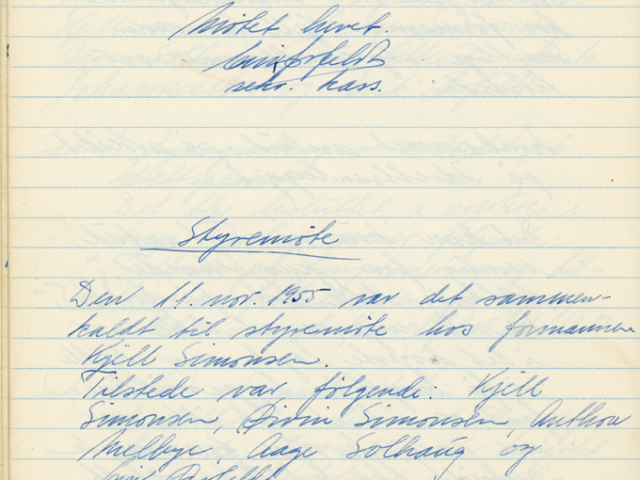 Møtet hevet.
sekr. kass.
Styremøte
Den 11. nov. 1955 var det sammen-
kaldt til styremøte hos formannen
Kjell Simonsen.
Tilstede var følgende: Kjell
Simonsen, Øivin Simonsen, Anthon
Melbye, Aage Solhaug og